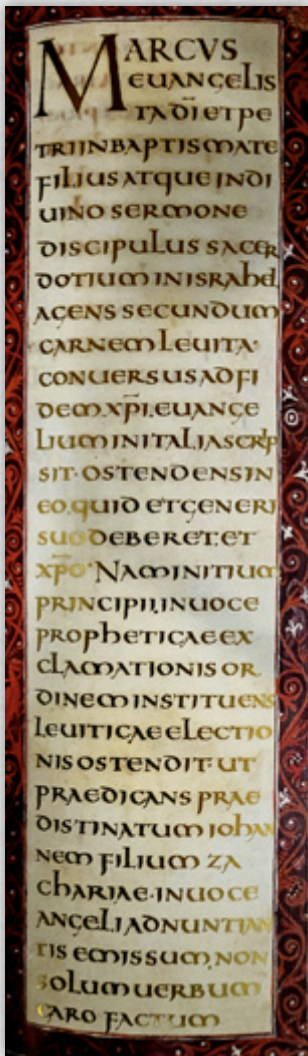 MARCVS
EUANGELIS
TA DĪ ET PE
TRI IN BAPTISMATE
FILIUS ATQUE IN DI
UINO SERMONE
DISCIPULUS SACER
DOTIUM IN ISRAHEL
AGENS SECUNDUM
CARNEM LEUITA·
CONUERSUS AD FI
DEM XP̄I. EUANGE
LIUM IN ITALIA SCRIP
SIT· OSTENDENS IN
EO. QUID ET GENERI
SUO DEBERET. ET
XP̄O· NAM INITIUM
PRINCIPII. IN UOCE
PROPHETICAE EX
CLAMATIONIS OR
DINEM INSTITUENS
LEUITICAE ELECTIO
NIS OSTENDIT· UT
PRAEDICANS PRAE
DISTINATUM IOHAN
NEM FILIUM ZA
CHARIAE· IN UOCE
ANGELI ADNUNTIAN
TIS EMISSUM. NON
SOLUM UERBUM
CARO FACTUM